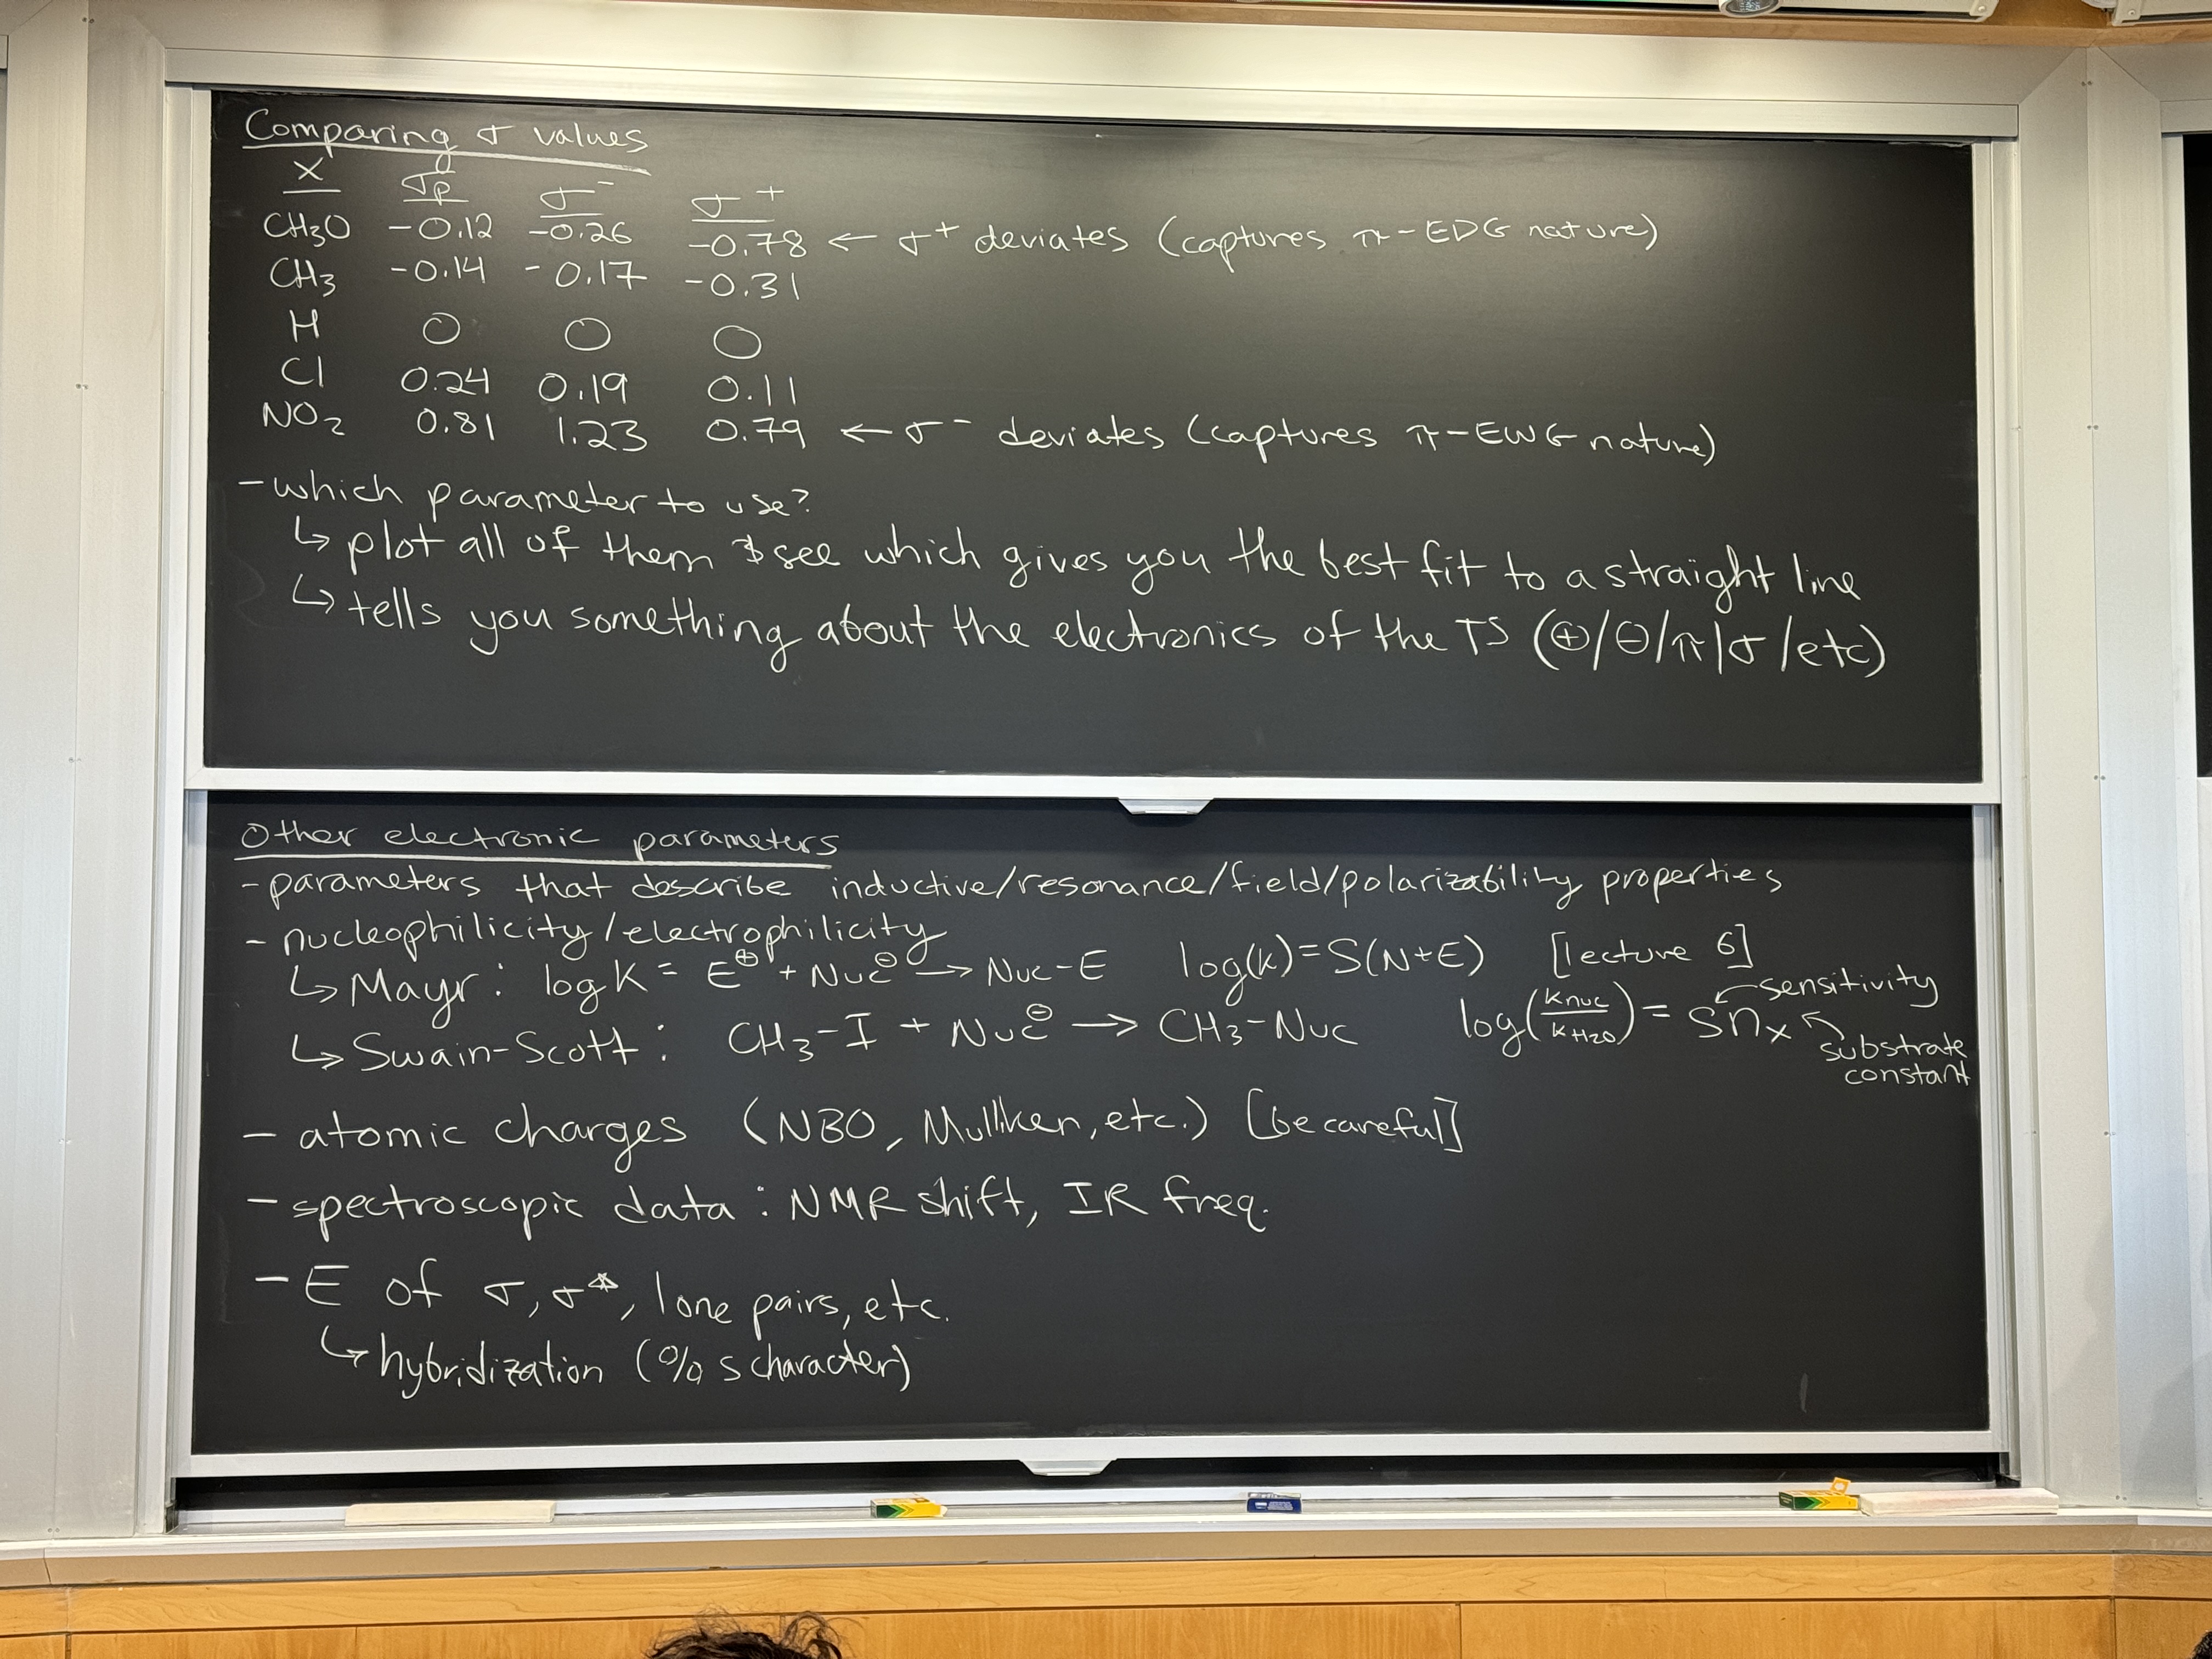 Comparing σ values
X σp σ⁻ σ⁺
CH3O -0.12 -0.26 -0.78 ← σ⁺ deviates (captures π-EDG nature)
CH3 -0.14 -0.17 -0.31
H 0 0 0
Cl 0.24 0.19 0.11
NO2 0.81 1.23 0.79 ← σ⁻ deviates (captures π-EWG nature)
- which parameter to use?
↳ plot all of them & see which gives you the best fit to a straight line
↳ tells you something about the electronics of the TS (⊕/⊖/π/σ/etc)
Other electronic parameters
- parameters that describe inductive/resonance/field/polarizability properties
- nucleophilicity/electrophilicity
↳ Mayr: log K = E⊕ + Nuc⊖ → Nuc-E log(k)=S(N+E) [lecture 6]
↳ Swain-Scott: CH3-I + Nuc⊖ → CH3-Nuc log(knuc/kH2O) = snx
sensitivity
substrate
constant
- atomic charges (NBO, Mulliken, etc.) [be careful]
- spectroscopic data: NMR shift, IR freq.
- E of σ, σ*, lone pairs, etc.
↳ hybridization (% s character)